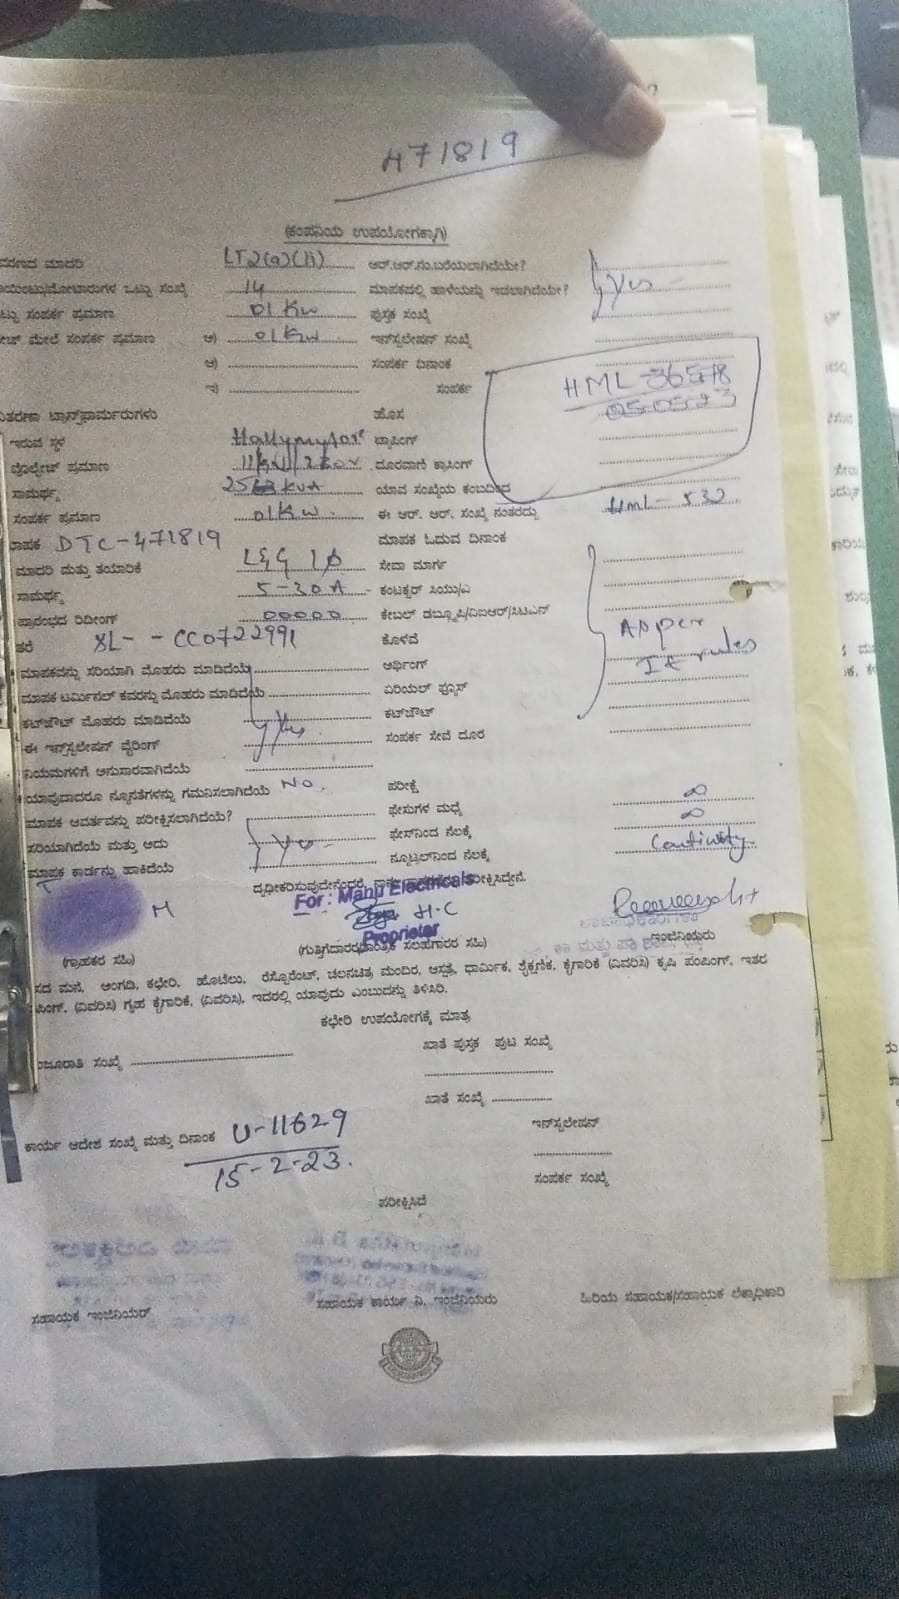 471819
(ಕಂಪನಿಯ ಉಪಯೋಗಕ್ಕಾಗಿ)
ಮಾದರಿ LT2(a)(ii) ಆರ್.ಆರ್.ನಂ.ಬರೆಯಲಾಗಿದೆಯೇ?
ಒಟ್ಟು ಸಂಖ್ಯೆ 14 ಮಾಪಕದಲ್ಲಿ ಹಾಳೆಯನ್ನು ಇಡಲಾಗಿದೆಯೇ? Yes
ಸಂಪರ್ಕ ಪ್ರಮಾಣ 01 KW ಪುಸ್ತಕ ಸಂಖ್ಯೆ
ಮೇಲೆ ಸಂಪರ್ಕ ಪ್ರಮಾಣ ಅ) 01 KW ಇನ್‌ಸ್ಟಲೇಷನ್ ಸಂಖ್ಯೆ
ಆ) ಸಂಪರ್ಕ ದಿನಾಂಕ
ಇ) ಸಂಪರ್ಕ HML-36578
ಹೊಸ
ಇರುವ ಸ್ಥಳ ಟ್ಯಾಪಿಂಗ್
ವೋಲ್ಟೇಜ್ ಪ್ರಮಾಣ ದೂರವಾಣಿ ಕ್ರಾಸಿಂಗ್
ಸಾಮರ್ಥ್ಯ KVA ಯಾವ ಸಂಖ್ಯೆಯ ಕಂಬದಿಂದ
ಸಂಪರ್ಕ ಪ್ರಮಾಣ 01KW. ಈ ಆರ್. ಆರ್. ಸಂಖ್ಯೆ ನಂತರದ್ದು HML-532
DTC-471819 ಮಾಪಕ ಓದುವ ದಿನಾಂಕ
ಮಾದರಿ ಮತ್ತು ತಯಾರಿಕೆ L&G 1Ø ಸೇವಾ ಮಾರ್ಗ
ಸಾಮರ್ಥ್ಯ 5-30A ಕಂಟಕ್ಟರ್ ಸಿಯು/ಎ
ಪ್ರಾರಂಭದ ರಿಡೀಂಗ್ 00000 ಕೇಬಲ್ ಡಬ್ಲ್ಯೂಪಿ/ವಿಐಆರ್/ಸಿಟಿಎಸ್
SL-- CC0722991 ಕೊಳವೆ As per
ಮಾಪಕವನ್ನು ಸರಿಯಾಗಿ ಮೊಹರು ಮಾಡಿದೆಯೆ ಅರ್ಥಿಂಗ್ IE rules
ಮಾಪಕ ಟರ್ಮಿನಲ್ ಕವರನ್ನು ಮೊಹರು ಮಾಡಿದೆಯೆ ಏರಿಯಲ್ ಫ್ಯೂಸ್
ಕಟ್‌ಔಟ್ ಮೊಹರು ಮಾಡಿದೆಯೆ Yes ಕಟ್‌ಔಟ್
ಈ ಇನ್‌ಸ್ಟಲೇಷನ್ ವೈರಿಂಗ್ ಸಂಪರ್ಕ ಸೇವೆ ದೂರ
ನಿಯಮಗಳಿಗೆ ಅನುಸಾರವಾಗಿದೆಯೆ
ಯಾವುದಾದರೂ ನ್ಯೂನತೆಗಳನ್ನು ಗಮನಿಸಲಾಗಿದೆಯೆ No. ಪರೀಕ್ಷೆ
ಮಾಪಕ ಆವರ್ತವನ್ನು ಪರೀಕ್ಷಿಸಲಾಗಿದೆಯೆ? ಫೇಸುಗಳ ಮಧ್ಯೆ ∞
ಸರಿಯಾಗಿದೆಯೆ ಮತ್ತು ಅದು Yes ಫೇಸ್‌ನಿಂದ ನೆಲಕ್ಕೆ ∞
ಮಾಪಕ ಕಾರ್ಡನ್ನು ಹಾಕಿದೆಯೆ ನ್ಯೂಟ್ರಲ್‌ನಿಂದ ನೆಲಕ್ಕೆ Continity
ದೃಢೀಕರಿಸುವುದೇನೆಂದರೆ, ಪರೀಕ್ಷಿಸಿದ್ದೇನೆ.
For: Manju Electricals
Proprietor
(ಗ್ರಾಹಕರ ಸಹಿ) ಸಲಹೆಗಾರರ ಸಹಿ) ಇಂಜಿನಿಯರು
ಮನೆ, ಅಂಗಡಿ, ಕಛೇರಿ, ಹೊಟೆಲು, ರೆಸ್ಟೊರೆಂಟ್, ಚಲನಚಿತ್ರ ಮಂದಿರ, ಆಸ್ಪತ್ರೆ, ಧಾರ್ಮಿಕ, ಶೈಕ್ಷಣಿಕ, ಕೈಗಾರಿಕೆ (ವಿವರಿಸಿ) ಕೃಷಿ ಪಂಪಿಂಗ್, ಇತರ
(ವಿವರಿಸಿ) ಗೃಹ ಕೈಗಾರಿಕೆ, (ವಿವರಿಸಿ), ಇದರಲ್ಲಿ ಯಾವುದು ಎಂಬುದನ್ನು ತಿಳಿಸಿರಿ.
ಕಛೇರಿ ಉಪಯೋಗಕ್ಕೆ ಮಾತ್ರ
ಸಂಖ್ಯೆ ಖಾತೆ ಪುಸ್ತಕ ಪುಟ ಸಂಖ್ಯೆ
ಖಾತೆ ಸಂಖ್ಯೆ
ಕಾರ್ಯ ಆದೇಶ ಸಂಖ್ಯೆ ಮತ್ತು ದಿನಾಂಕ U-11629 ಇನ್‌ಸ್ಟಲೇಷನ್
15-2-23. ಸಂಪರ್ಕ ಸಂಖ್ಯೆ
ಪರೀಕ್ಷಿಸಿದೆ
ಸಹಾಯಕ ಇಂಜಿನಿಯರ್ ಸಹಾಯಕ ಕಾರ್ಯ ನಿ. ಇಂಜಿನಿಯರು ಹಿರಿಯ ಸಹಾಯಕ/ಸಹಾಯಕ ಲೆಕ್ಕಾಧಿಕಾರಿ